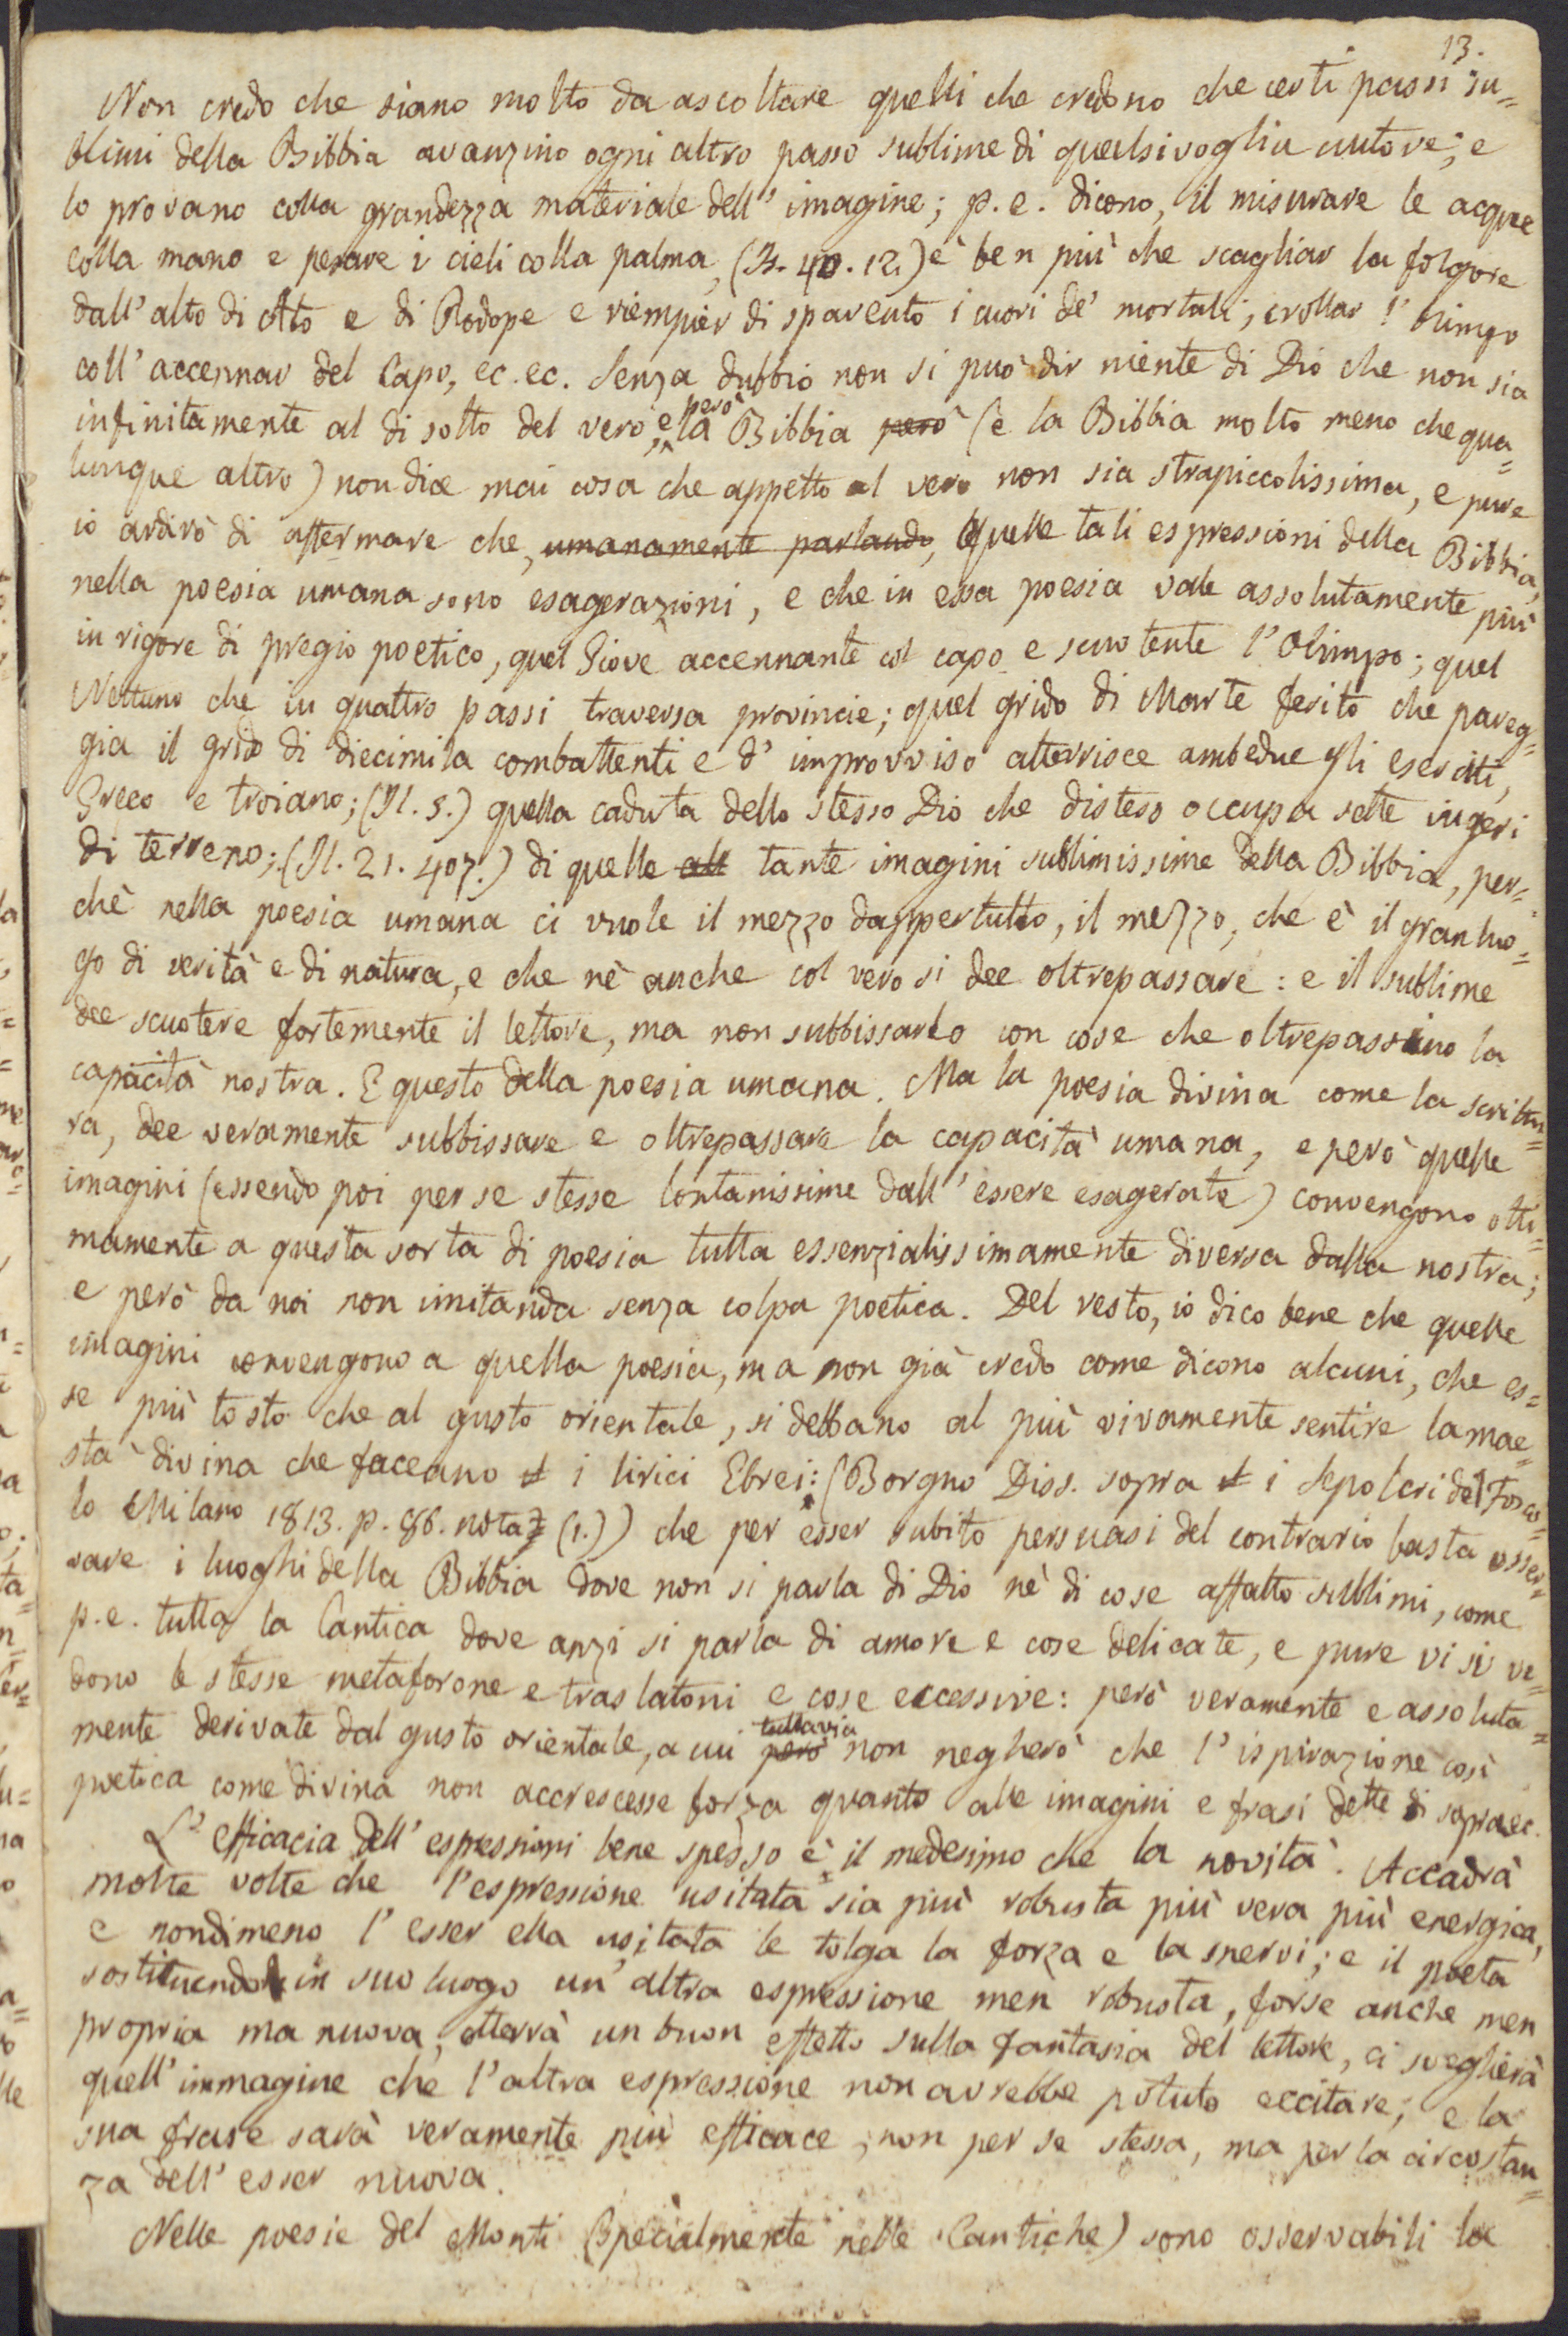 13.
Non credo che siano molto da ascoltare quelli che credono che certi passi su=
blimi della Bibbia avanzino ogni altro passo sublime di qualsivoglia autore; e
lo provano colla grandezza materiale dell' imagine; p. e. dicono, il misurare le acque
colla mano e pesare i cieli colla palma, (Is. 40. 12.) è ben più che scagliar la folgore
dall' alto di Ato e di Rodope e riempier di spavento i cuori de' mortali, crollar l' Olimpo
coll' accennar del Capo, ec. ec. Senza dubbio non si può dir niente di Dio che non sia
infinitamente al di sotto del vero, e però la Bibbia però (e la Bibbia molto meno che qua=
lunque altro) non dice mai cosa che appetto al vero non sia strapiccolissima, e pure
io ardirò di affermare che, umanamente parlando, quelle tali espressioni della Bibbia,
nella poesia umana sono esagerazioni, e che in essa poesia vale assolutamente più
in rigore di pregio poetico, quel Giove accennante col capo e scuotente l' Olimpo; quel
Nettuno che in quattro passi traversa provincie; quel grido di Marte ferito che pareg=
gia il grido di diecimila combattenti e d' improvviso atterrisce ambedue gli eserciti,
Greco e troiano; (Il. 5.) quella caduta dello stesso Dio che disteso occupa sette iugeri
di terreno; (Il. 21. 407.) di quelle all tante imagini sublimissime della Bibbia, per=
chè nella poesia umana ci vuole il mezzo dappertutto, il mezzo, che è il gran luo=
go di verità e di natura, e che nè anche col vero si dee oltrepassare: e il sublime
dee scuotere fortemente il lettore, ma non subbissarlo con cose che oltrepassino la
capacità nostra. E questo della poesia umana. Ma la poesia divina come la scrittu=
ra, dee veramente subbissare e oltrepassare la capacità umana, e però quelle
imagini (essendo poi per se stesse lontanissime dall' essere esagerate) convengono otti=
mamente a questa sorta di poesia tutta essenzialissimamente diversa dalla nostra;
e però da noi non imitanda senza colpa poetica. Del resto, io dico bene che quelle
imagini convengono a quella poesia, ma non già credo come dicono alcuni, che es=
se più tosto che al gusto orientale, si debbano al più vivamente sentire la mae=
stà divina che faceano i lirici Ebrei: (Borgno Diss. sopra i Sepolcri del Fosco=
lo Milano 1813. p. 86. nota (1.)) che per esser subito persuasi del contrario basta osser=
vare i luoghi della Bibbia dove non si parla di Dio nè di cose affatto sublimi, come
p. e. tutta la Cantica dove anzi si parla di amore e cose delicate, e pure vi si ve=
dono le stesse metaforone e traslatoni e cose eccessive: però veramente e assoluta=
mente derivate dal gusto orientale, a cui però tuttavia non negherò che l' ispirazione così
poetica come divina non accrescesse forza quanto alle imagini e frasi dette di sopra ec.
L' efficacia dell' espressioni bene spesso è il medesimo che la novità. Accadrà
molte volte che l' espressione usitata sia più robusta più vera più energica,
e nondimeno l' esser ella usitata le tolga la forza e la snervi; e il poeta
sostituendo in suo luogo un' altra espressione men robusta, forse anche men
propria ma nuova, otterrà un buon effetto sulla fantasia del lettore, ci sveglierà
quell' immagine che l' altra espressione non avrebbe potuto eccitare; e la
sua frase sarà veramente più efficace, non per se stessa, ma per la circostan=
za dell' esser nuova.
Nelle poesie del Monti (specialmente nelle Cantiche) sono osservabili la